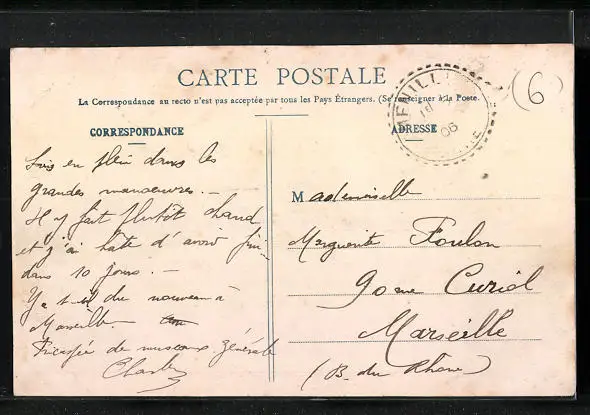 CARTE POSTALE
La Correspondance au recto n'est pas acceptée par tous les Pays Étrangers. (Se renseigner à la Poste.
CORRESPONDANCE
Suis en plein dans les
grandes manoeuvres. -
Il y fait plutôt chaud
et j'ai hâte d'avoir fini
dans 10 jours. -
Y a-t-il du nouveau à
Marseille.
de museaux générale
Charles
ADRESSE
Mademoiselle
Marguerite Foulon
90 rue Curiol
Marseille
(B. du Rhône)
06
(6)